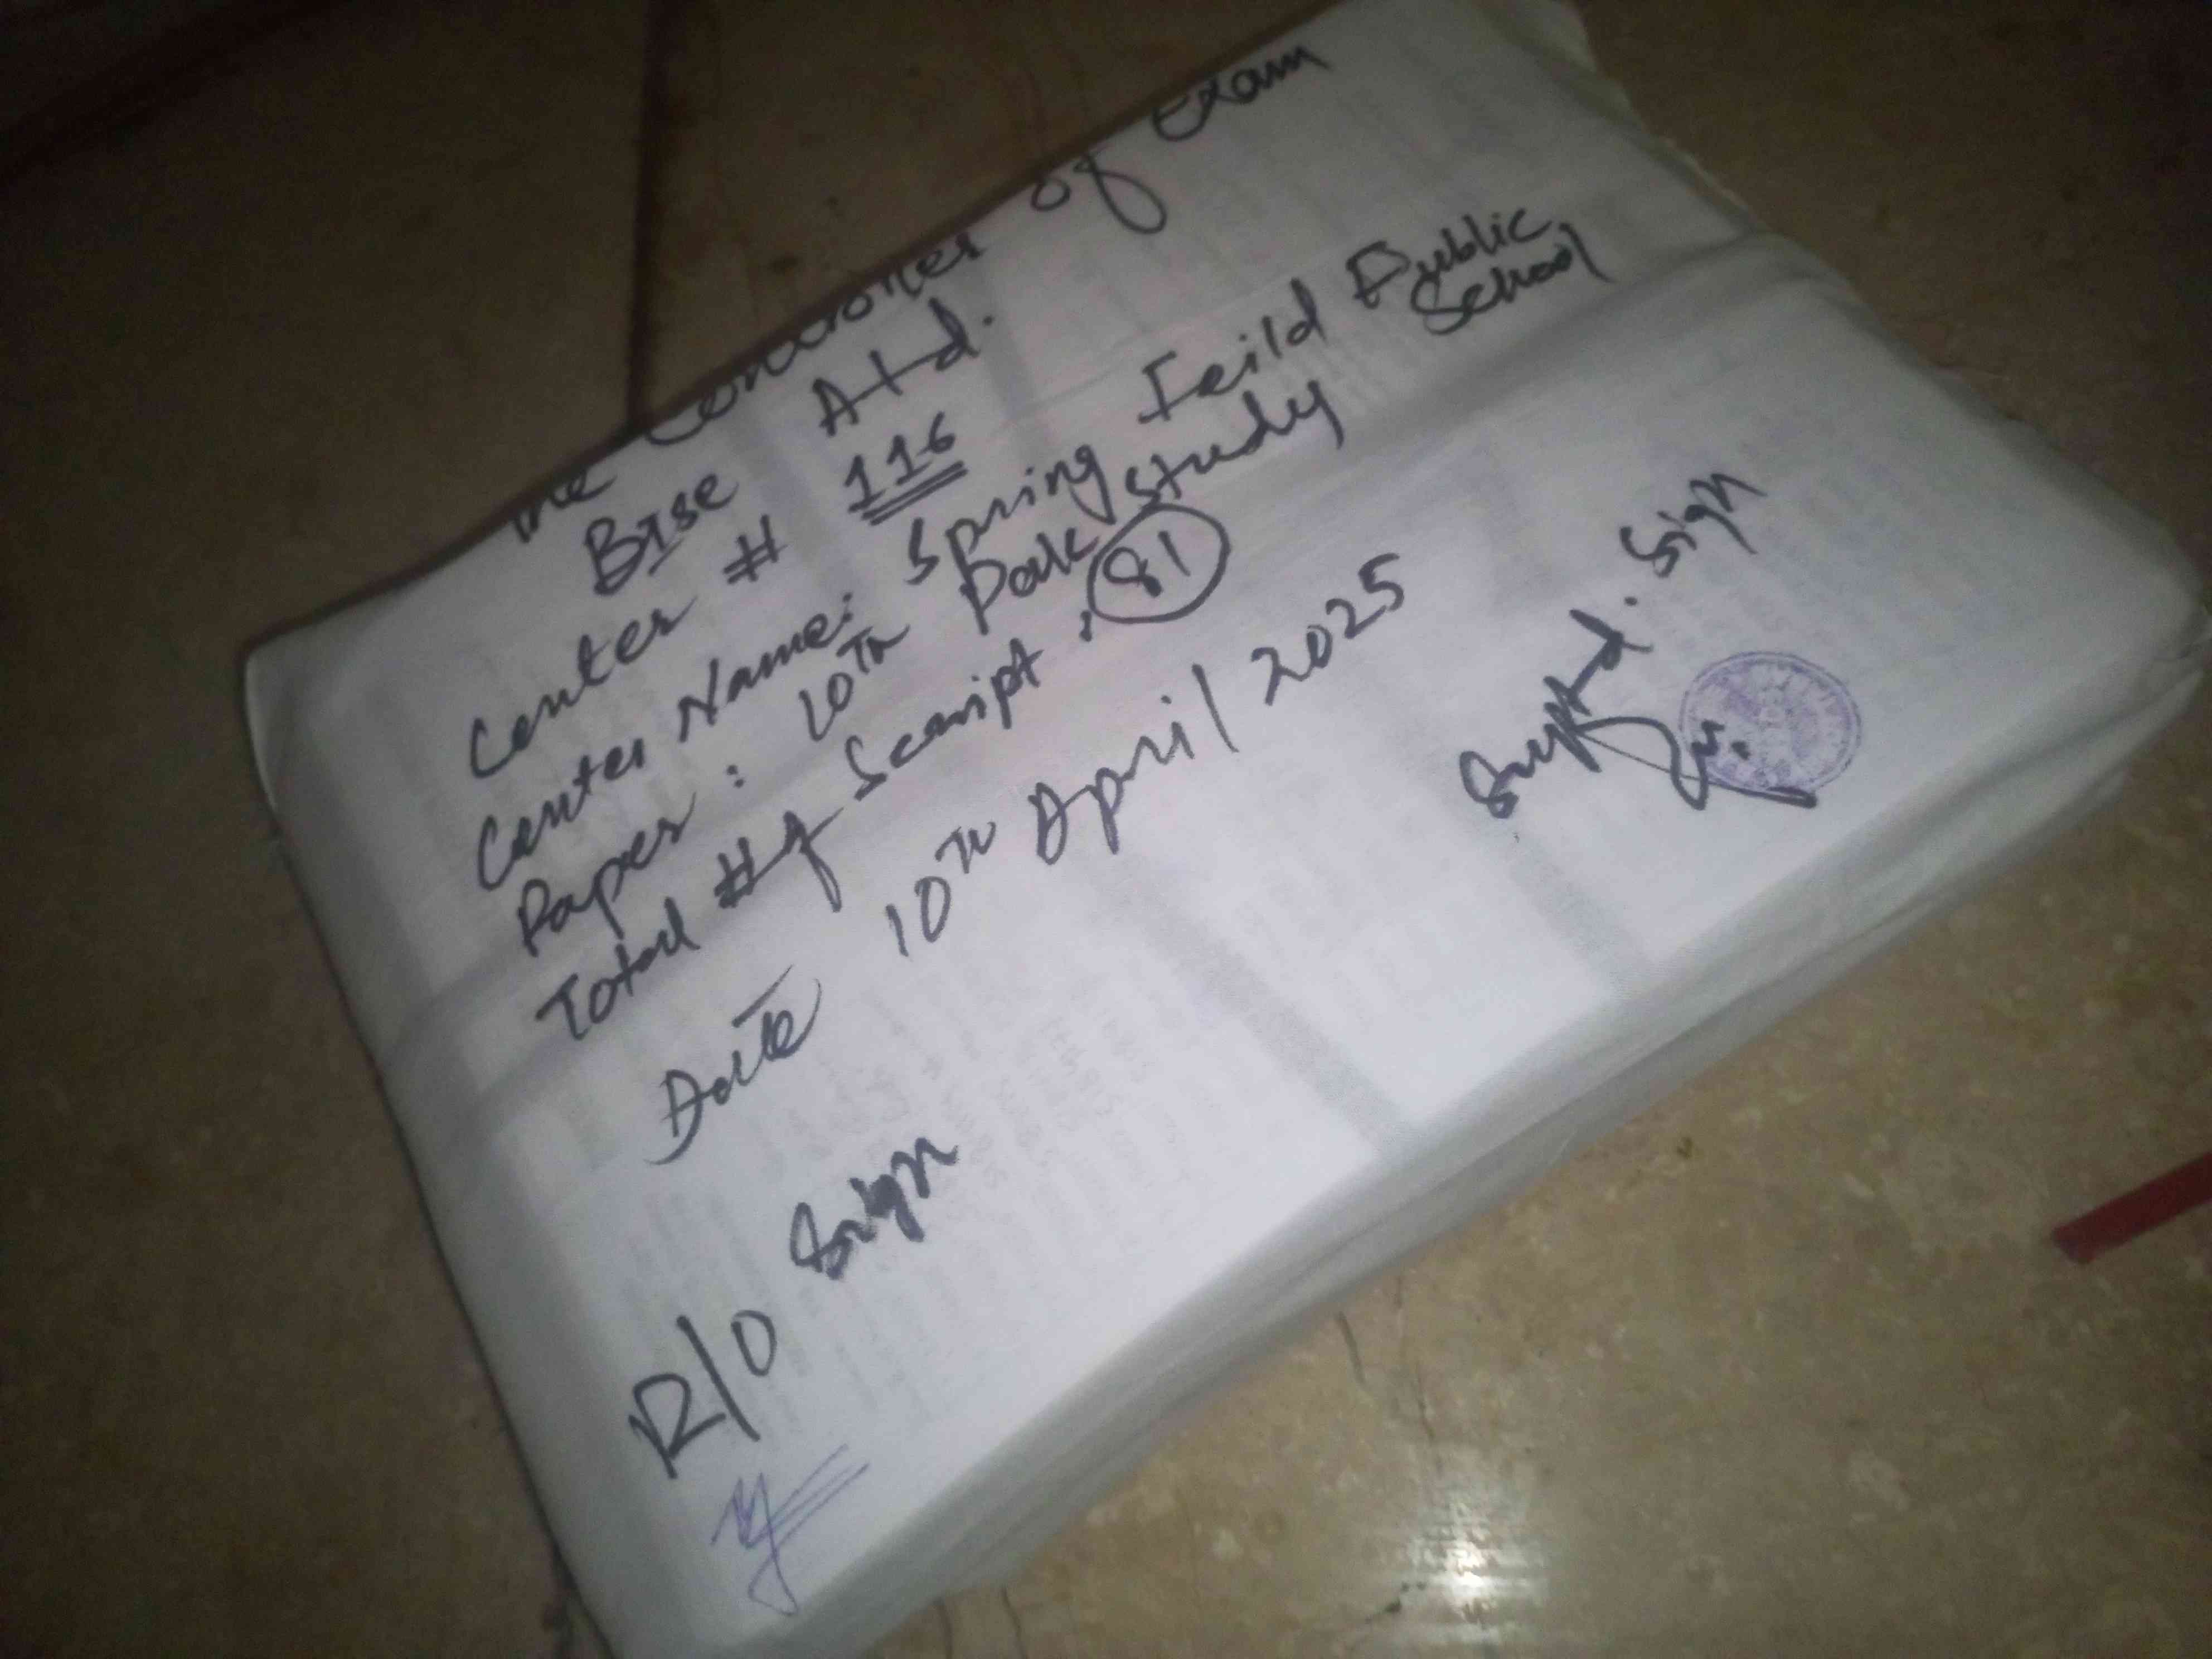 The Controller of Exam
BISE Atd.
Center # 116
Center Name: Spring Feild Public School
Paper : 10Th Pak Study
Total # of Script : 81
Date 10Th April 2025
Supt-d. Sign
R/O Sign